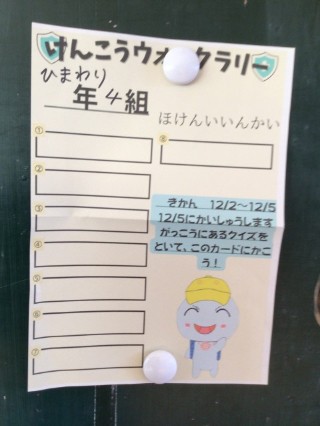 けんこうウォークラリー
ひまわり
年4組
ほけんいいんかい
①
②
③
④
⑤
⑥
⑦
⑧
きかん 12/2~12/5
12/5にかいしゅうします
がっこうにあるクイズを
といて、このカードにかこ
う!